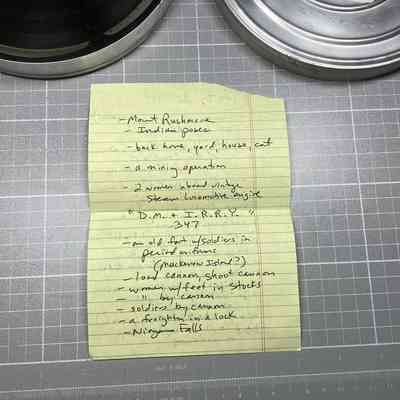 - Mount Rushmore
- Indian poses
- back home, yard, house, cat
- a mining operation
- 2 women aboard vintage
steam locomotive engine
"D.M. & I.R.R.Y."
347
- an old fort w/soldiers in
period uniforms
(Mackinaw Island?)
- load cannon, shoot cannon
- women w/feet in stocks
- " by cannon
- soldiers by cannon
- a freighter in a lock
- Niagara Falls